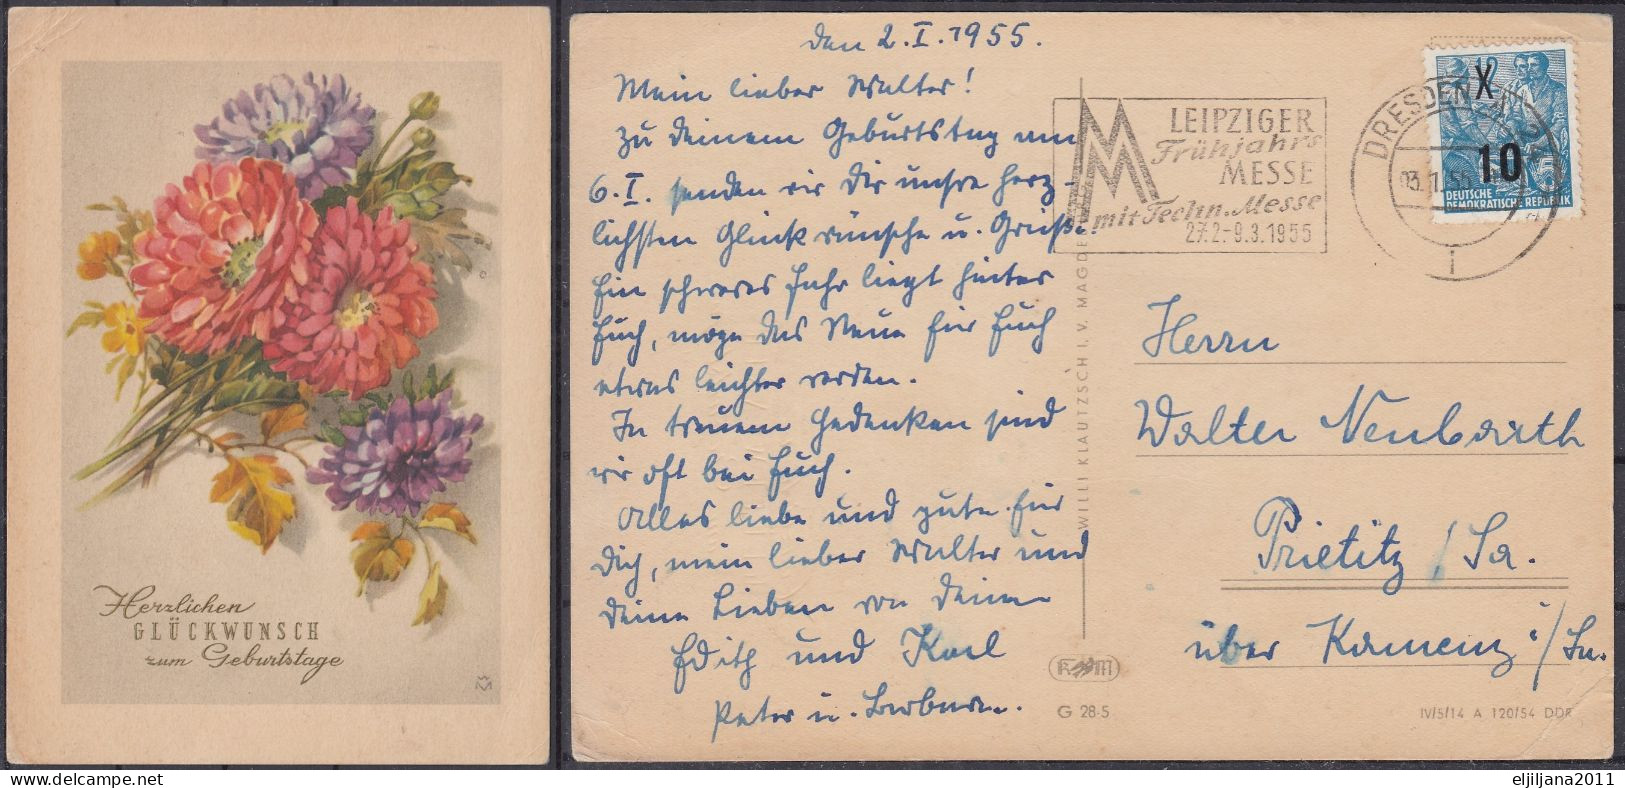 Herzlichen
GLÜCKWUNSCH
zum Geburtstage
den 2.I.1955.
Mein lieber Walter!
Zu Deinem Geburtstag am
6.I. senden wir Dir unsre herz-
lichsten Glückwünsche u. Grüße.
Ein schweres Jahr liegt hinter
Euch, möge das Neue für Euch
etwas leichter werden.
In treuem Gedenken sind
wir oft bei Euch.
Alles liebe und gute für
Dich, mein lieber Walter und
Deine Lieben von Deinen
Edith und Karl
Peter u. Barbara.
LEIPZIGER
Frühjahrs
MESSE
mit Techn. Messe
27.2.-9.3.1955
DRESDEN
X
10
DEUTSCHE
DEMOKRATISCHE REPUBLIK
WILLI KLAUTZSCH I. V. MAGDE
Herrn
Walter Neubarth
Prietitz / Sa.
über Kamenz i/Sa.
G 28-5
IV/5/14 A 120/54 DDR
eljiljana2011